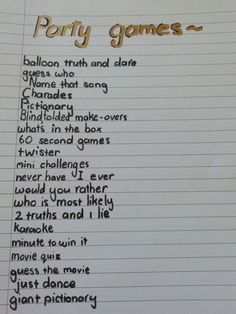 Party games~
balloon truth and dare
guess who
Name that song
Charades
Pictionary
Blindfolded make-overs
whats in the box
60 second games
twister
mini challenges
never have I ever
would you rather
who is most likely
2 truths and 1 lie
karaoke
minute to win it
movie quiz
guess the movie
just dance
giant pictionary